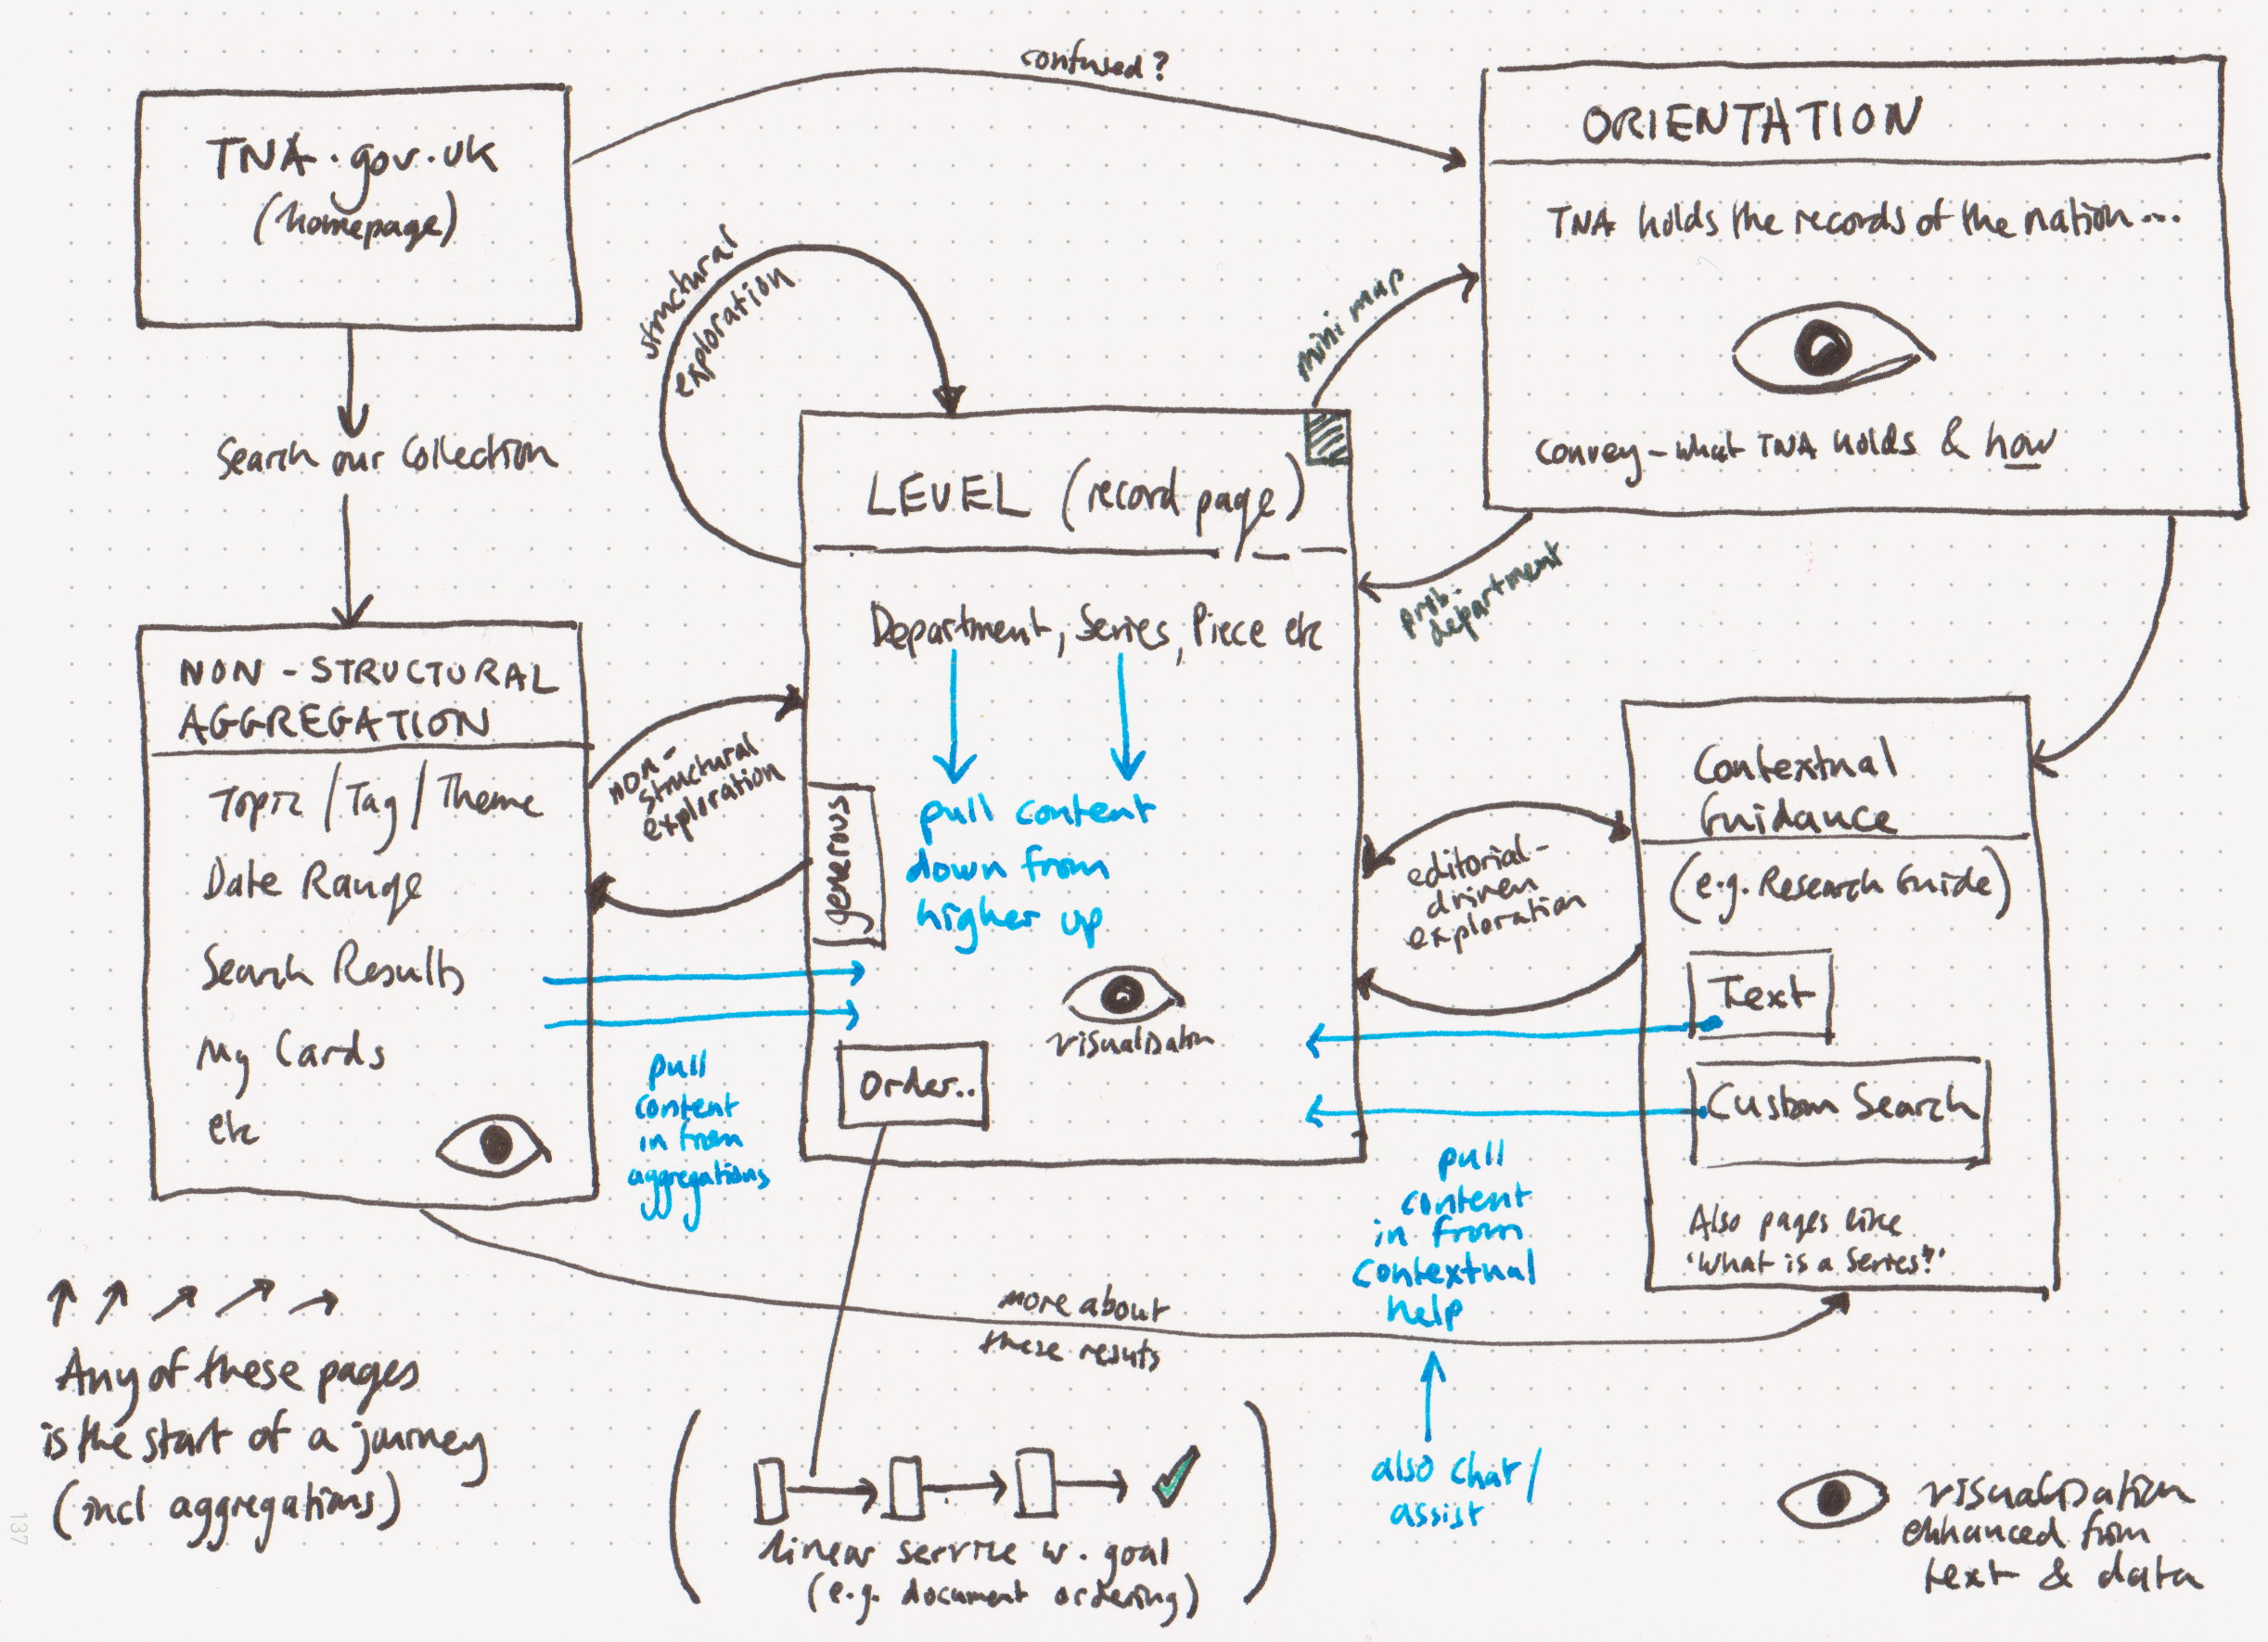 confused?
TNA.gov.uk
(homepage)
ORIENTATION
TNA holds the records of the nation...
Convey - what TNA holds & how
structural
exploration
mini map
Search our Collection
LEVEL (record page)
Department, Series, Piece etc
prob.
department
NON-STRUCTURAL
AGGREGATION
Topic / Tag / Theme
Date Range
Search Results
My Cards
etc
non-
structural
exploration
generous
pull content
down from
higher up
visualisation
Order..
editorial-
driven
exploration
Contextual
Guidance
(e.g. Research Guide)
Text
Custom Search
Also pages like
'What is a Series?'
pull
content
in from
aggregations
pull
content
in from
contextual
help
also chat/
assist
more about
these results
Any of these pages
is the start of a journey
(incl aggregations)
linear service w. goal
(e.g. document ordering)
visualisation
enhanced from
text & data
137